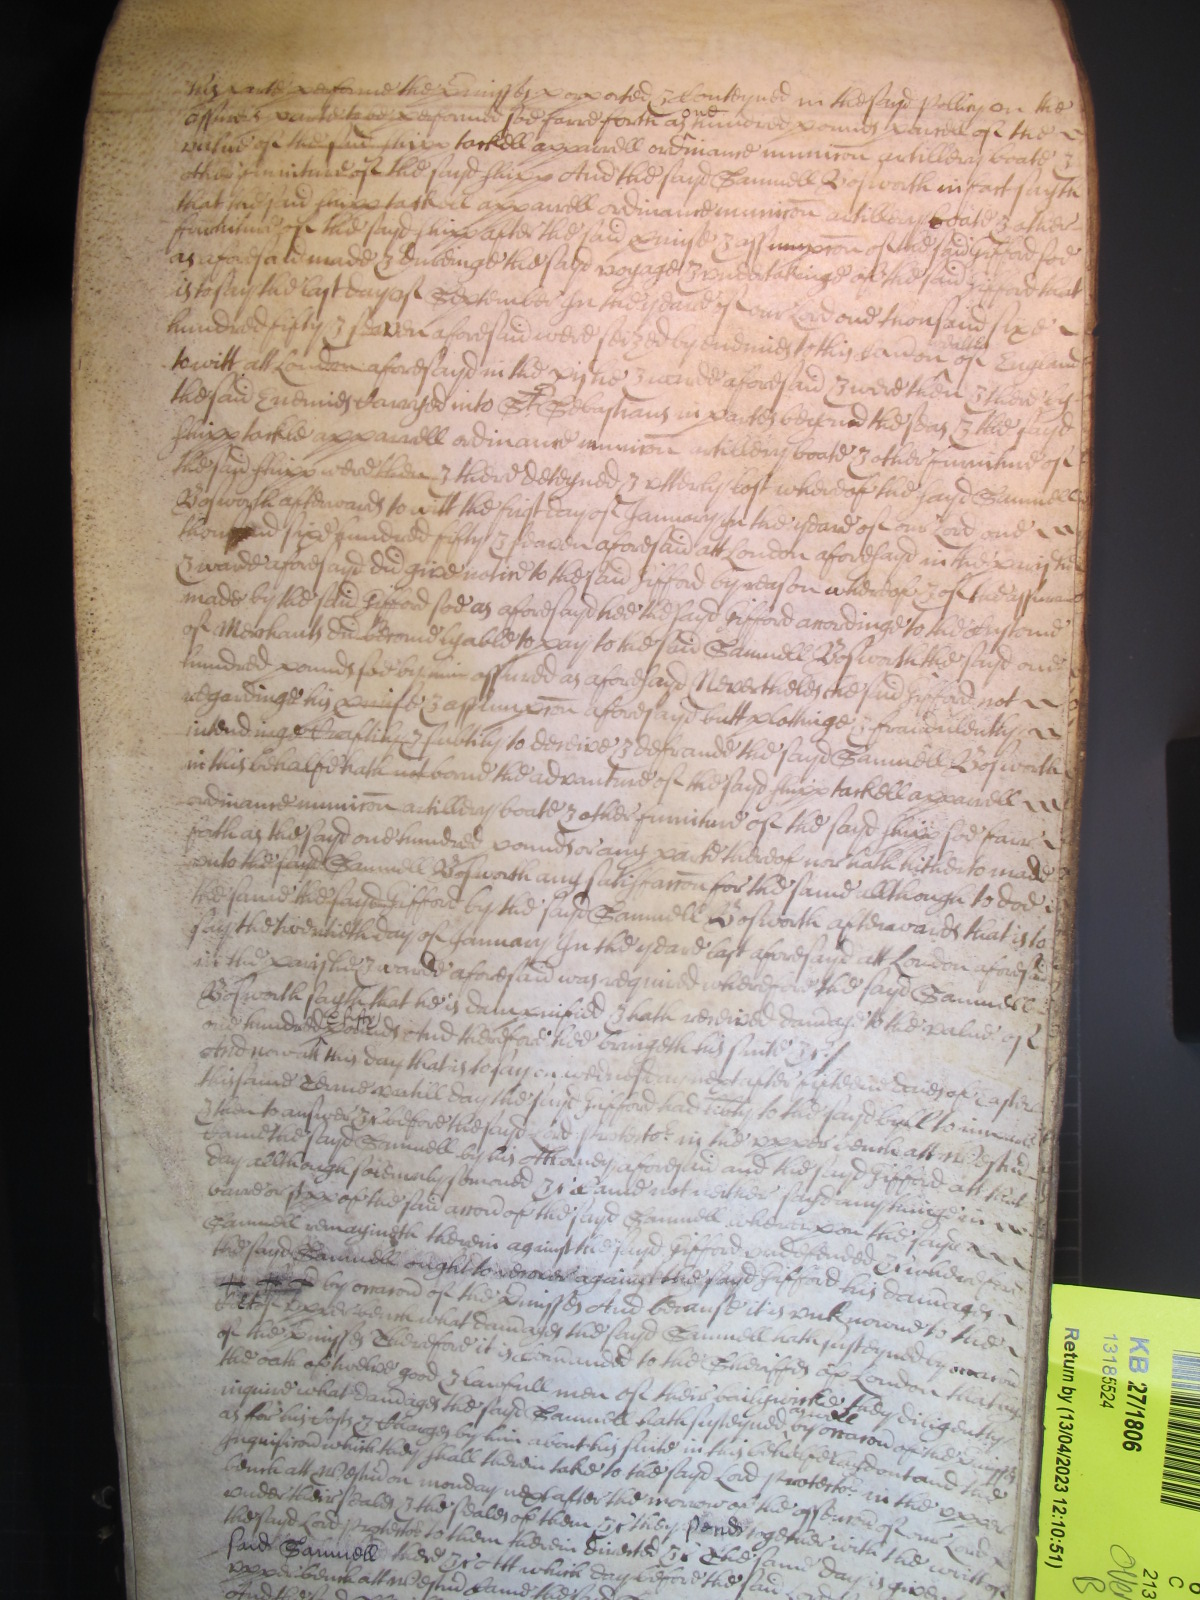 his parte performe the p'misses purported & conteyned in the sayd Pollicy on the
assurers parte to be performed soe farre forth as one hundred pounds parcell of the
value of the said shipp tackell apparrell ordinance municon artillery boate &
other furniture of the sayd shipp And the sayd Samuell Bosworth in fact sayth
that the said shipp tackell apparrell ordinance municon artillery boate & other
furniture of the sayd shipp after the said p'mise & assumpcon of the said Gifford soe
as aforesaid made & dureinge the sayd voyage & undertakinge of the said Gifford that
is to say the last day of September In the yeare of our Lord one thousand sixe
hundred fifty & seaven aforesaid were seized by enemies to this Comon wealth of England
to witt att London aforesayd in the p'ishe & warde aforesaid & were then & there by
the said Enemies carryed into St. Sebastians in partes beyond the seas & the sayd
shipp tackle apparrell ordinance municon artillery boate & other furniture of
the said shipp were then & there deteyned & utterly lost whereof the sayd Samuell
Bosworth afterwards to witt the first day of January In the yeare of our Lord one
thousand sixe hundred fifty & seaven aforesaid att London aforesayd in the parishe
& warde aforesayd did give notice to the said Gifford by reason whereof & of the assurance
made by the said Gifford soe as aforesayd hee the sayd Gifford accordinge to the Custome
of Merchants did become lyable to pay to the said Samuell Bosworth the sayd one
hundred pounds soe by him assured as aforesayd Neverthelesse the said Gifford not
regardinge his p'mise & assumpcon aforesayd butt plottinge & fraudulently
intendinge craftily & subtily to deceive & defraude the sayd Samuell Bosworth
in this behalfe hath not borne the adventure of the sayd shipp tackell apparrell
ordinance municon artillery boate & other furniture of the sayd shipp soe farr
forth as the sayd one hundred pounds or any parte thereof nor hath hitherto made
unto the sayd Samuell Bosworth any satisfaccon for the same allthough to doe
the same the sayd Gifford by the sayd Samuell Bosworth afterwards that is to
say the twentieth day of January In the yeare last aforesayd att London aforesaid
in the parishe & warde aforesaid was required wherefore the sayd Samuell
Bosworth sayth that he is dampnified & hath received damage to the value of
one hundred & fifty pounds And therefore hee bringeth his suite &c
And now att this day that is to say on wednesday next after fifteene daies of Easter
this same Terme untill day the sayd Gifford had licity to the sayd byll to imparle
& then to answer &c before the sayd Lord Protector in the upper bench att Westm
came the sayd Samuell by his Attorney aforesaid and the sayd Gifford att that
day allthough solemnly somoned &c came not neither sayd any thinge in
barre or of the said accon of the sayd Samuell whereupon the sayd
Samuell remayneth therein against the sayd Gifford undefended &c wherefore
the sayd Samuell ought to recover against the sayd Gifford his damages
by occacon of the p'misses And because it is unknowne to the
Court of upper bench what damages the sayd Samuell hath susteyned by occacon
of the p'misses Therefore it is Comanded to the Sheriffes of London that by
the oath of twelve good & lawfull men of their bailywicke they diligently
inquire what damages the sayd Samuell hath susteyned aswell by occacon of the p'misses
as for his Costs & Charges by him about his suite in this behalfe layd out and the
Inquisicon which they shall therein take to the sayd Lord Protector in the upper
bench att Westm on monday next after the morrow of the assencon of our Lord
under their seales & the seales of them &c they send together with the writt of
the sayd Lord Protector to them therein directed &c The same day is given
said Samuell there &c Att which day before the said Lord
upper bench att Westm came the said